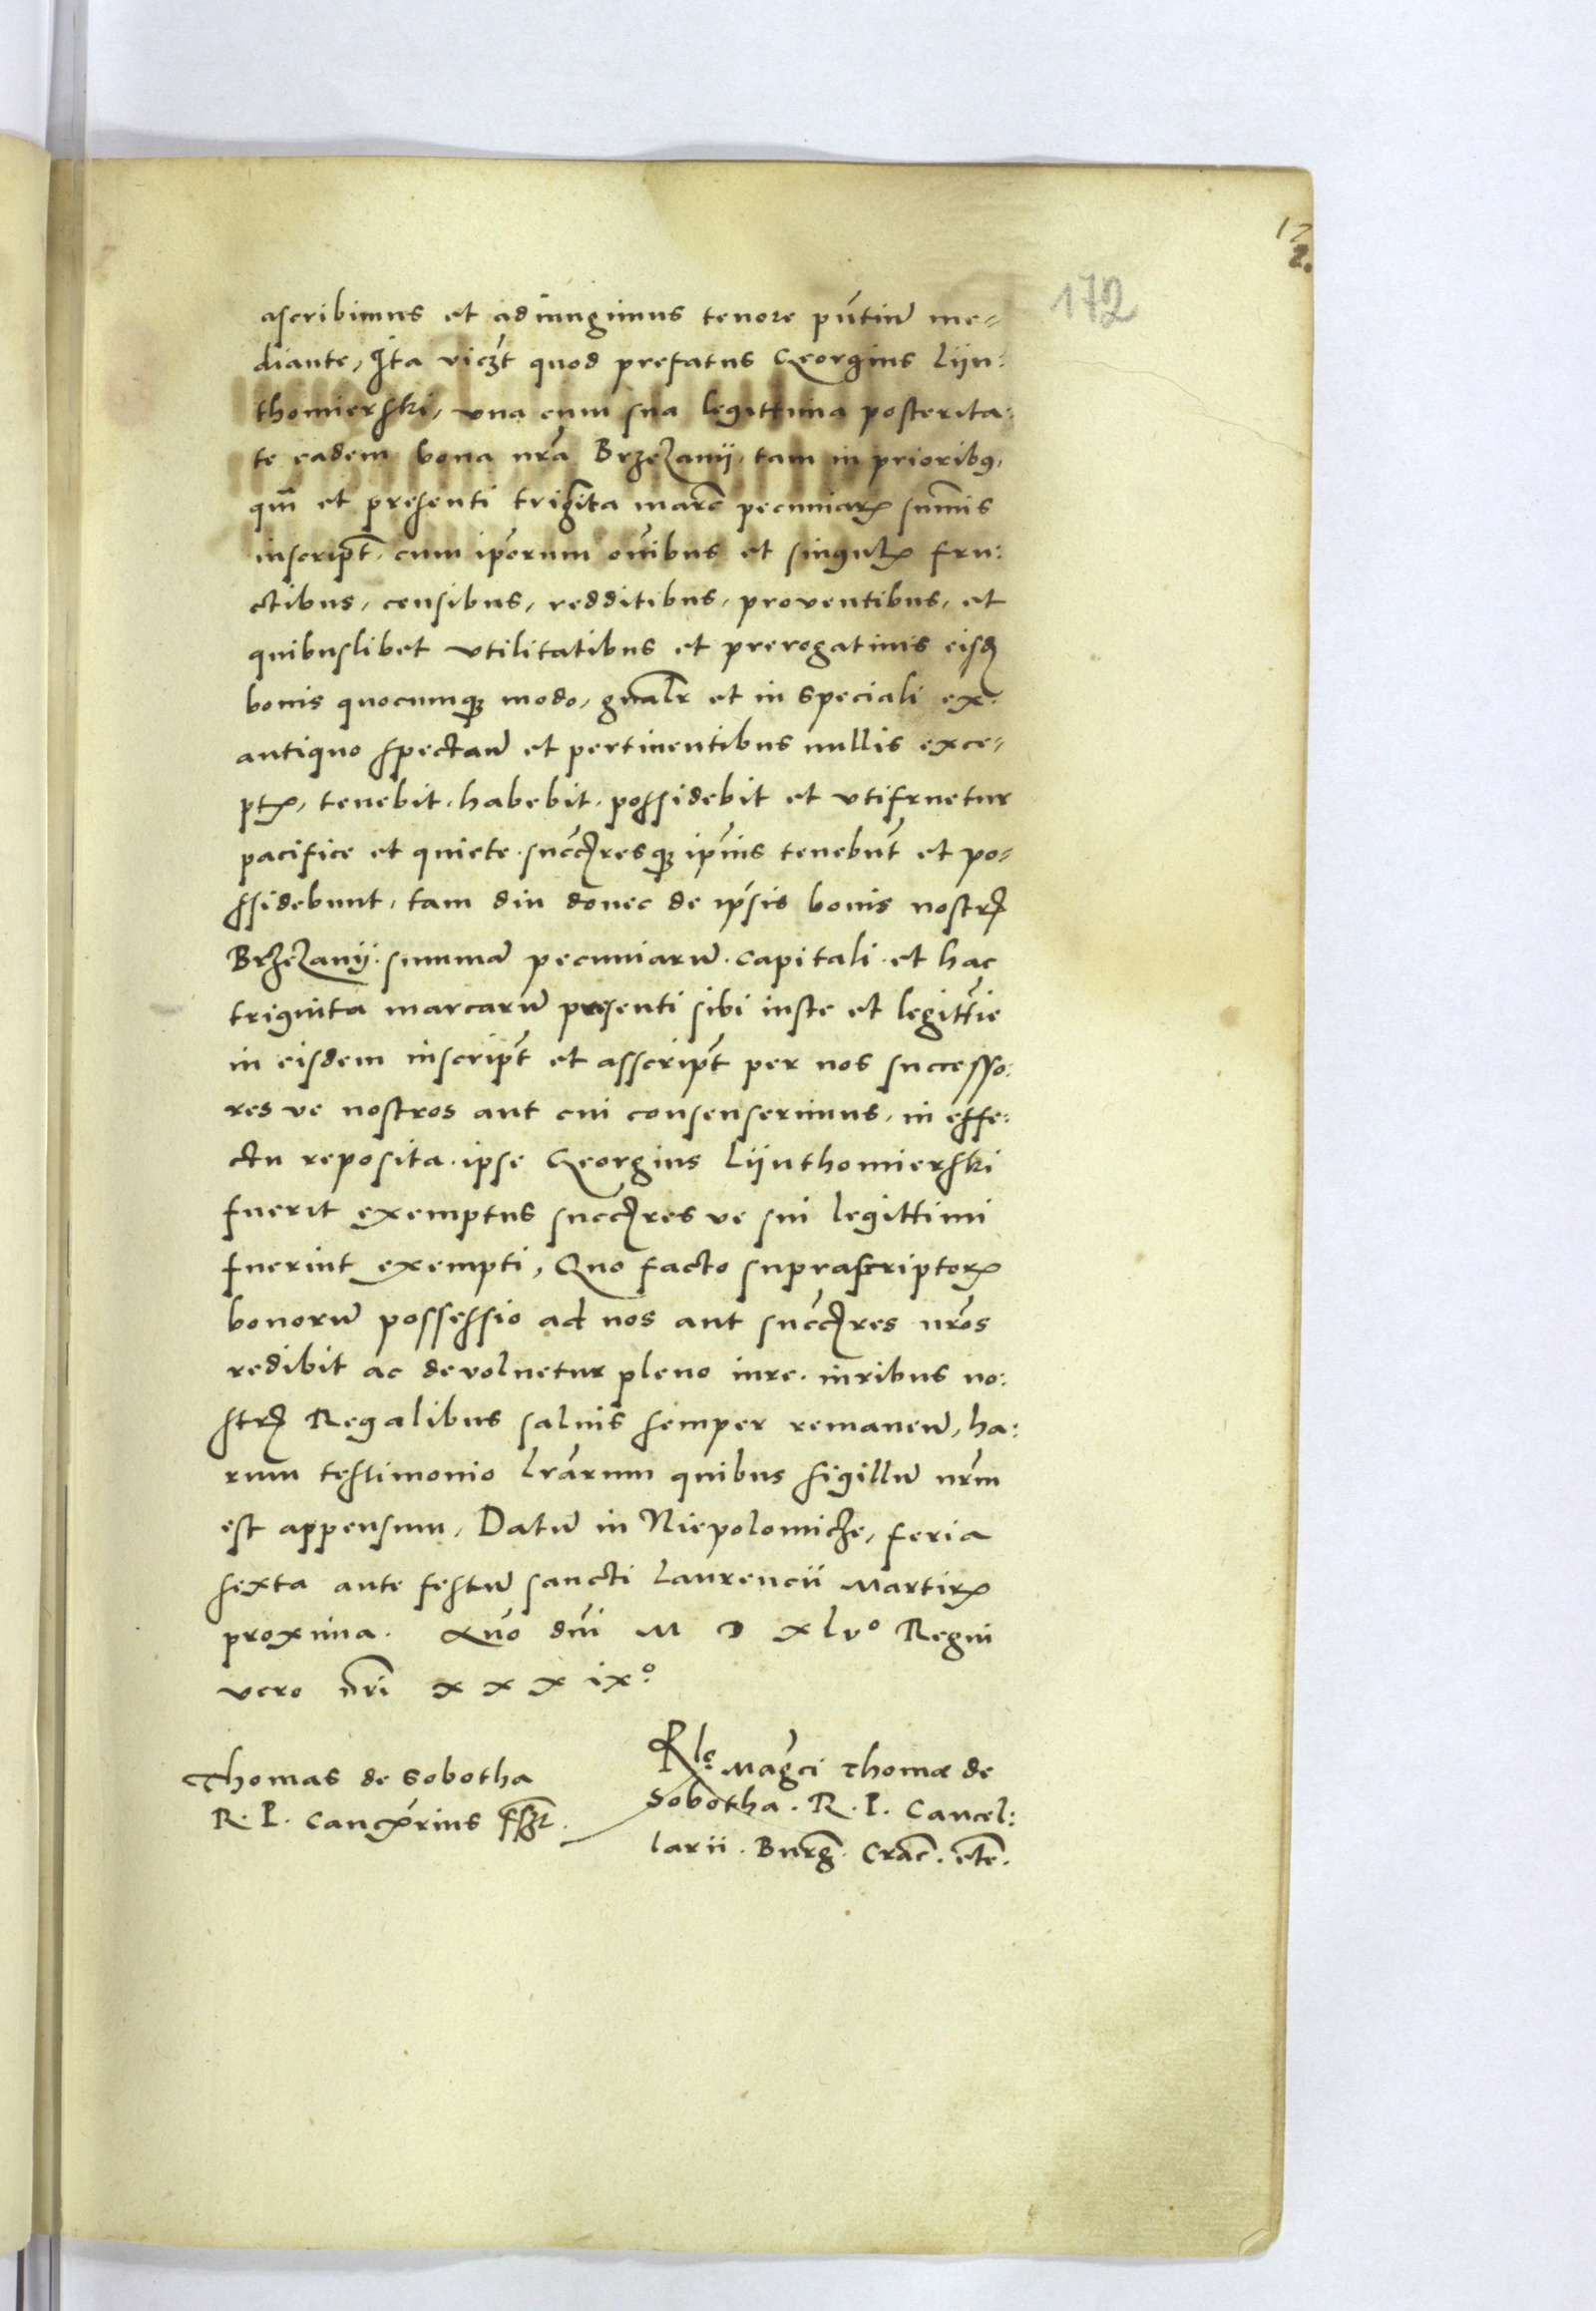 17
2.
172
ascribimus et adiungimus tenore pñtium me=
diante, Ita viczt quod prefatus Georgius Lijn:
thomierski, vna cum sua legittima posterita:
te eadem bona nra Brzezanij, tam in prioribus,
qm et presenti triginta marc pecuniarum summis
inscript, cum ipsorum oibus et singulis fru:
ctibus, censibus, redditibus, proventibus, et
quibuslibet vtilitatibus et prerogatiuis eisdem
bonis quocumque modo, gnalr et in speciali ex
antiquo spectan et pertinentibus nullis exce=
ptis, tenebit, habebit, possidebit et vtifruetur
pacifice et quiete, succresque ipius tenebnt et po=
ssidebunt, tam diu donec de ipsis bonis nostris
Brzezanij summa pecuniarum capitali et hac
triginta marcarum presenti sibi iuste et legittie
in eisdem inscript et asscript per nos successo:
res ve nostros aut cui consenserimus, in effe:
ctu reposita, ipse Georgius Lijnthomierski
fuerit exemptus succres ve sui legittimi
fuerint exempti, Quo facto suprascriptorum
bonorum possessio ad nos aut succres nros
redibit ac devoluetur pleno iure, iuribus no:
stris Regalibus saluis semper remanen, ha:
rum testimonio lrarum quibus sigillum nrm
est appensum, Datum in Niepolomicze, feria
sexta ante festum sancti Laurencii Martiris
proxima. Ano dni M D xlvo Regni
vero nri x x x ixo
Thomas de Sobotha
R. P. Cancrius sszt.
Rlo Magci Thomae de
Sobotha. R. P. Cancel:
larii. Burg. Crac. etc.